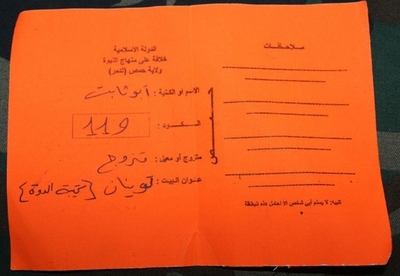 الدولة الاسلامية
خلافة على منهاج النبوة
ولاية حمص (تدمر)
الاسم او الكنية: أبو ثابت
الكود: 119
متزوج أو معيل: متزوج
عنوان البيت:
ملاحظات
تنبيه: لا يسلم أي شخص الا لحامل هذه البطاقة